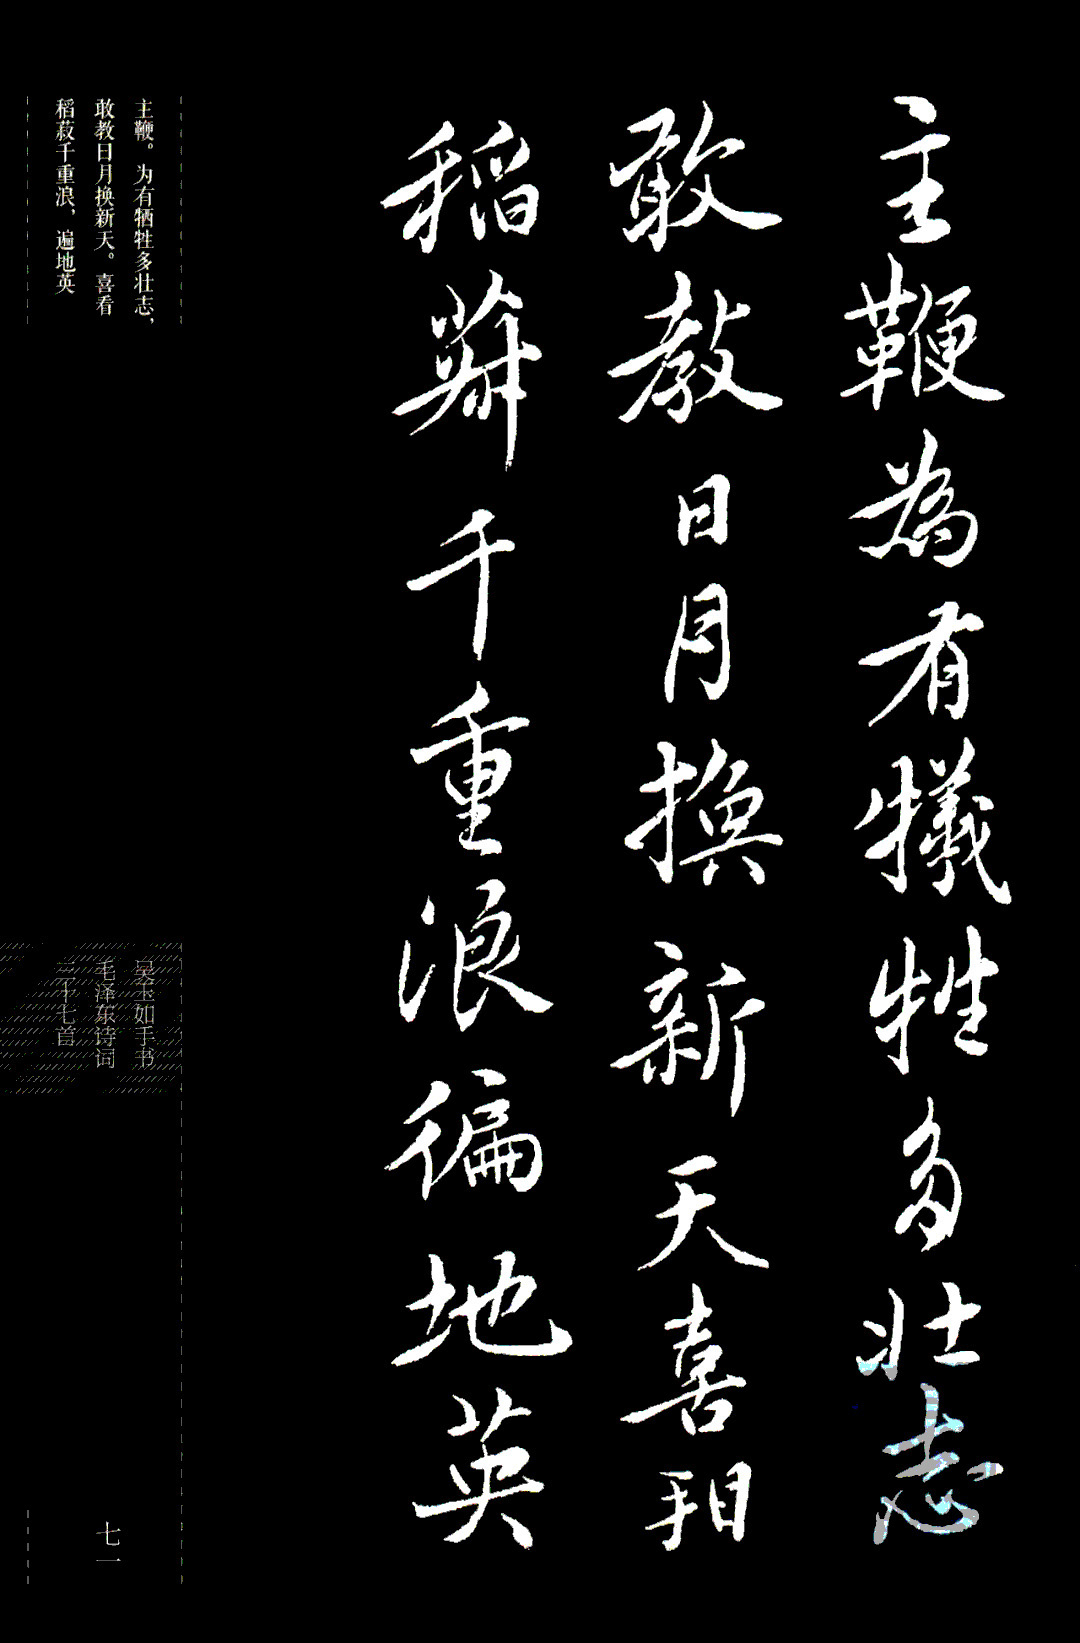 主鞭為有犧牲多壯志
敢教日月換新天喜看
稻菽千重浪徧地英
主鞭。为有牺牲多壮志，
敢教日月换新天。喜看
稻菽千重浪，遍地英
吴玉如手书
毛泽东诗词
三十七首
七一